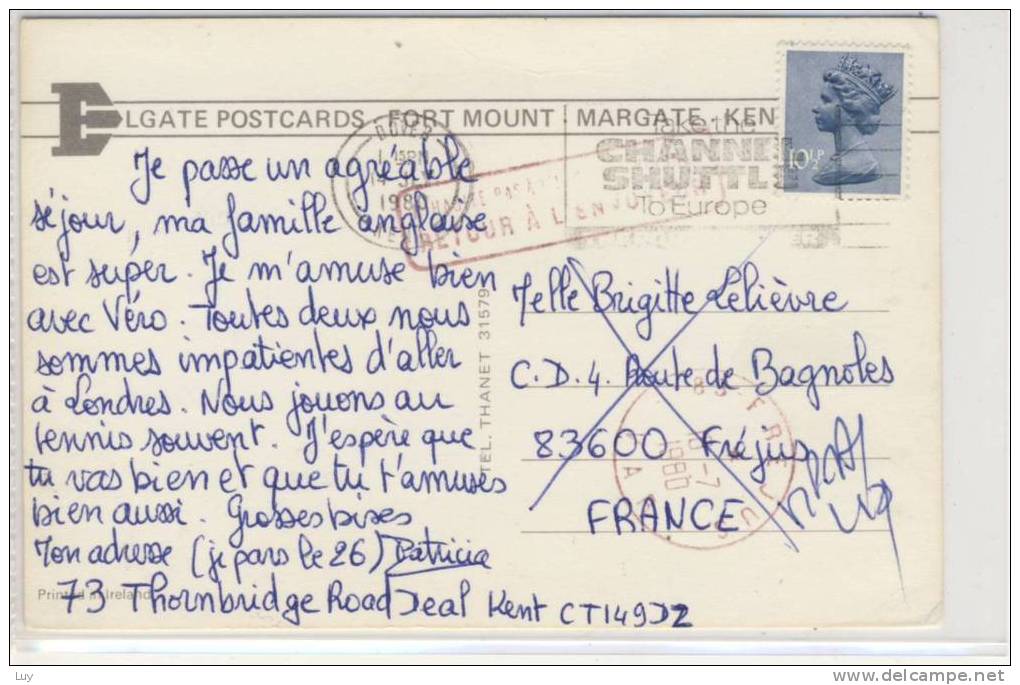 ELGATE POSTCARDS · FORT MOUNT MARGATE · KEN
Je passe un agréable
séjour, ma famille anglaise
est super. Je m'amuse bien
avec Véro. Toutes deux nous
sommes impatientes d'aller
à Londres. Nous jouons au
tennis souvent. J'espère que
tu vas bien et que tu t'amuses
bien aussi. Grosses bises
Mon adresse (je pars le 26) Patricia
73 Thornbridge Road Deal Kent CT149DZ
Printed in Ireland
TEL. THANET 31579
DOVER
1980
RETOUR À L'ENVOYEUR
Take the
CHANNEL
SHUTTLE
To Europe
10½P
Melle Brigitte Lelièvre
C.D.4. Route de Bagnoles
83600 Fréjus
FRANCE
83 FREJUS
1980
Luy
delcampe.net